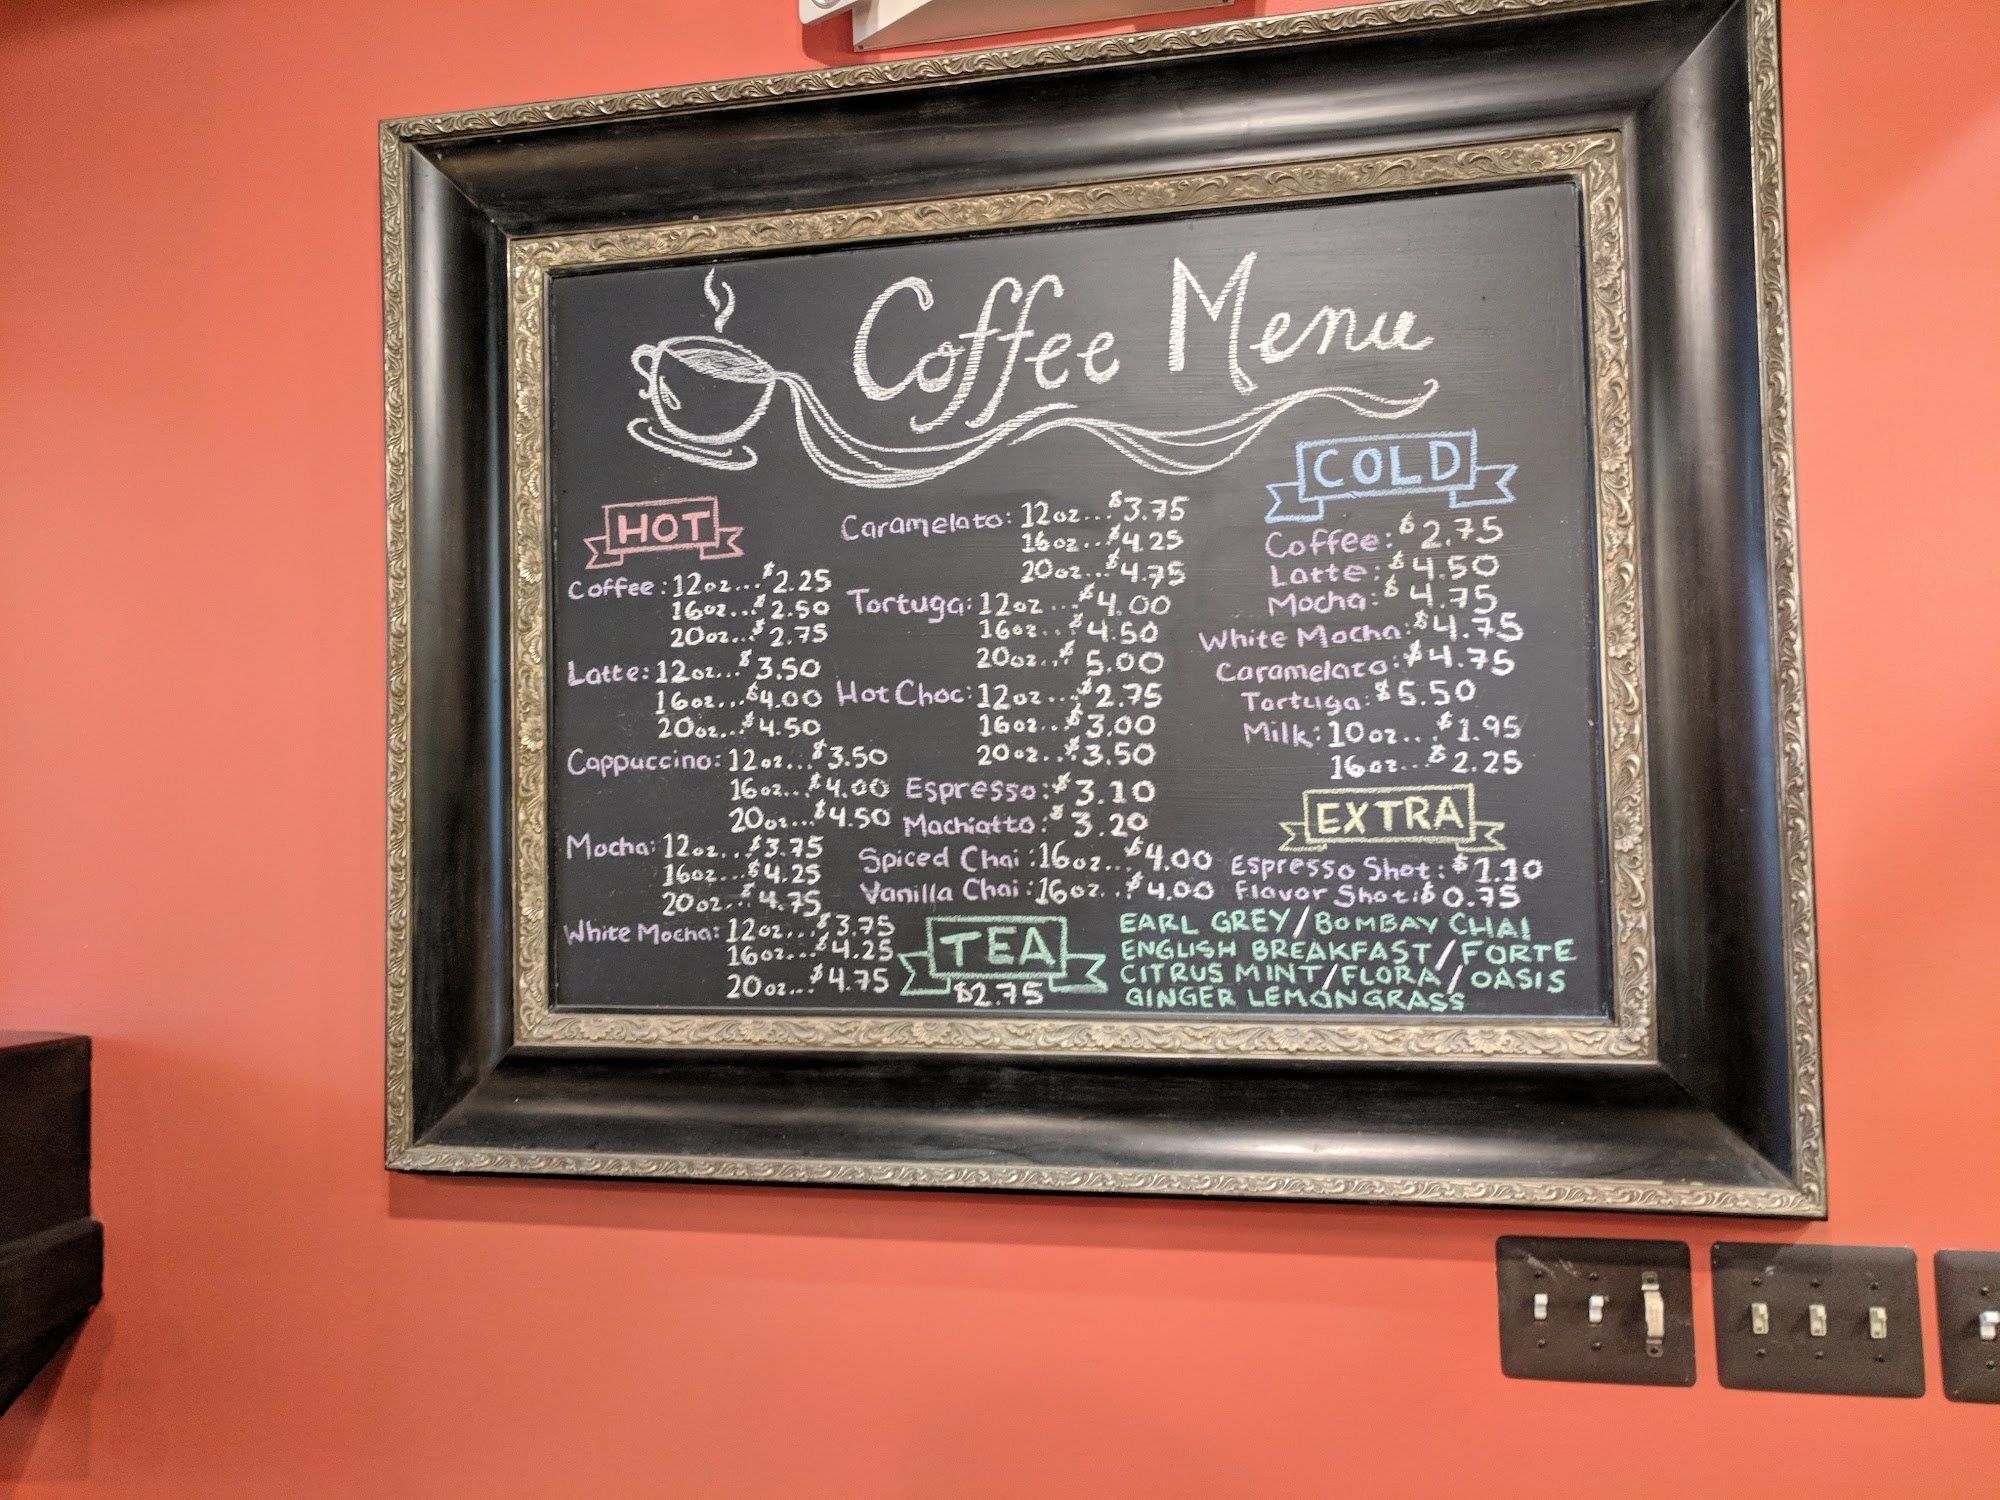 Coffee Menu
HOT
Coffee: 12oz...$2.25
16oz...$2.50
20oz...$2.75
Latte: 12oz...$3.50
16oz...$4.00
20oz...$4.50
Cappuccino: 12oz...$3.50
16oz...$4.00
20oz...$4.50
Mocha: 12oz...$3.75
16oz...$4.25
20oz...$4.75
White Mocha: 12oz...$3.75
16oz...$4.25
20oz...$4.75
Caramelato: 12oz...$3.75
16oz...$4.25
20oz...$4.75
Tortuga: 12oz...$4.00
16oz...$4.50
20oz...$5.00
Hot Choc: 12oz...$2.75
16oz...$3.00
20oz...$3.50
Espresso: $3.10
Machiatto: $3.20
Spiced Chai: 16oz...$4.00
Vanilla Chai: 16oz...$4.00
COLD
Coffee: $2.75
Latte: $4.50
Mocha: $4.75
White Mocha: $4.75
Caramelato: $4.75
Tortuga: $5.50
Milk: 10oz...$1.95
16oz...$2.25
EXTRA
Espresso Shot: $1.10
Flavor Shot: $0.75
TEA
$2.75
EARL GREY/BOMBAY CHAI
ENGLISH BREAKFAST/FORTE
CITRUS MINT/FLORA/OASIS
GINGER LEMONGRASS